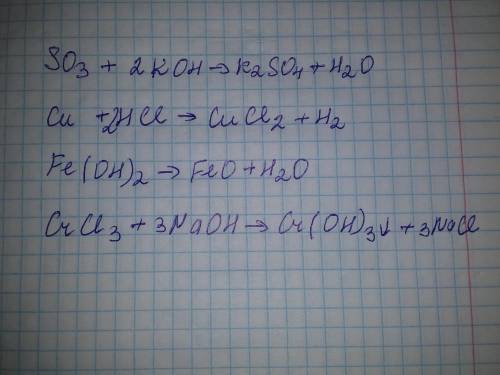 SO₃ + 2KOH → K₂SO₄ + H₂O
Cu + 2HCl → CuCl₂ + H₂
Fe(OH)₂ → FeO + H₂O
CrCl₃ + 3NaOH → Cr(OH)₃↓ + 3NaCl